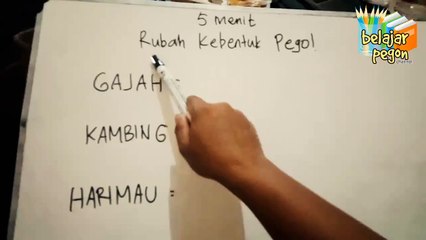 5 Menit
Rubah Kebentuk Pego!
GAJAH =
KAMBING
HARIMAU =
belajar
pegon